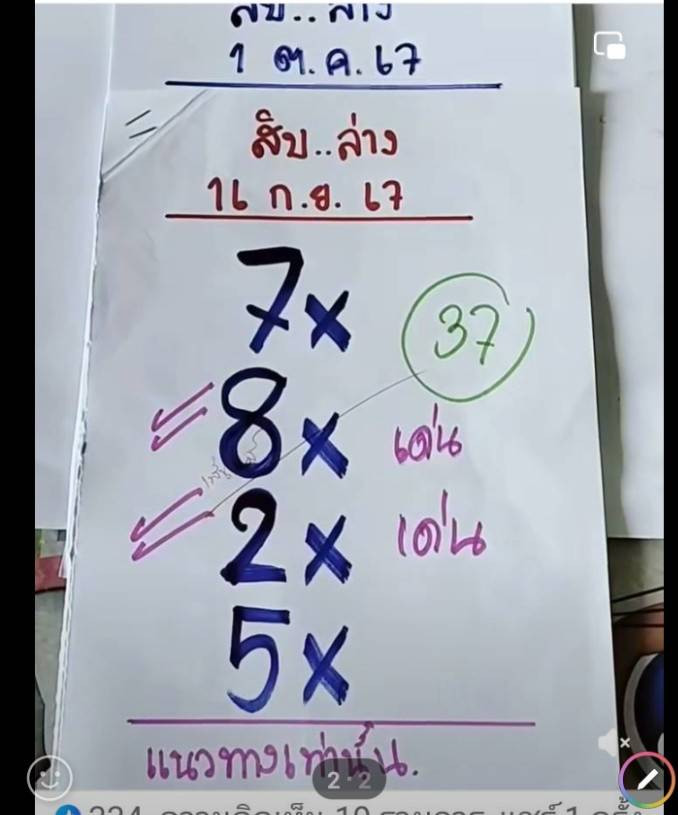 สิบ..ล่าง
1 ต.ค.67
สิบ..ล่าง
16 ก.ย. 67
7x
37
8x เด่น
2x เด่น
5x
แนวทางเท่านั้น.
2 2